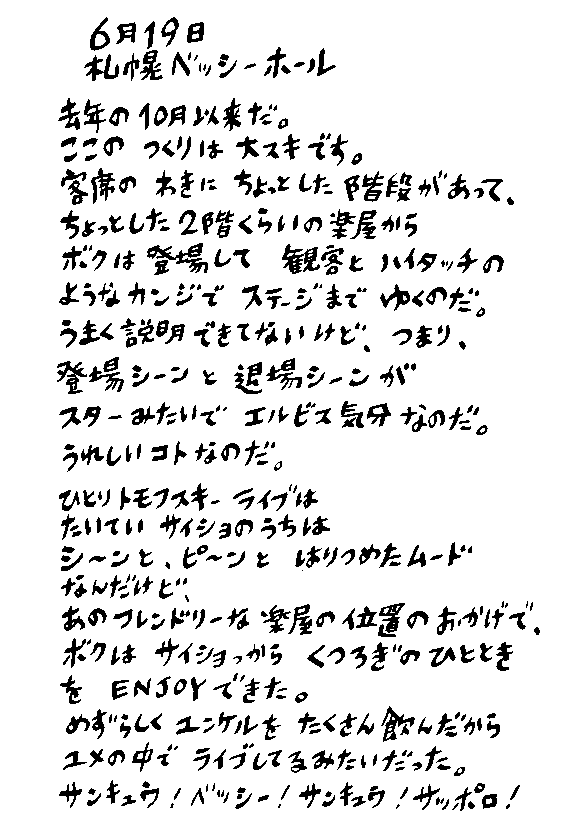 6月19日
札幌ベッシーホール
去年の10月以来だ。
ここの つくりは 大スキです。
客席の わきに ちょっとした 階段があって、
ちょっとした2階くらいの楽屋から
ボクは 登場して 観客と ハイタッチの
ようなカンジで ステージまで ゆくのだ。
うまく説明できてないけど、つまり、
登場シーンと 退場シーンが
スターみたいで エルビス気分なのだ。
うれしいコトなのだ。
ひとりトモフスキー ライブは
たいてい サイショのうちは
シ〜ンと、ピ〜ンと はりつめたムード
なんだけど、
あのフレンドリーな 楽屋の位置のおかげで、
ボクは サイショっから くつろぎのひととき
を ENJOYできた。
めずらしく ユンケルを たくさん飲んだから
ユメの中で ライブしてるみたいだった。
サンキュウ!ベッシー!サンキュウ!サッポロ!